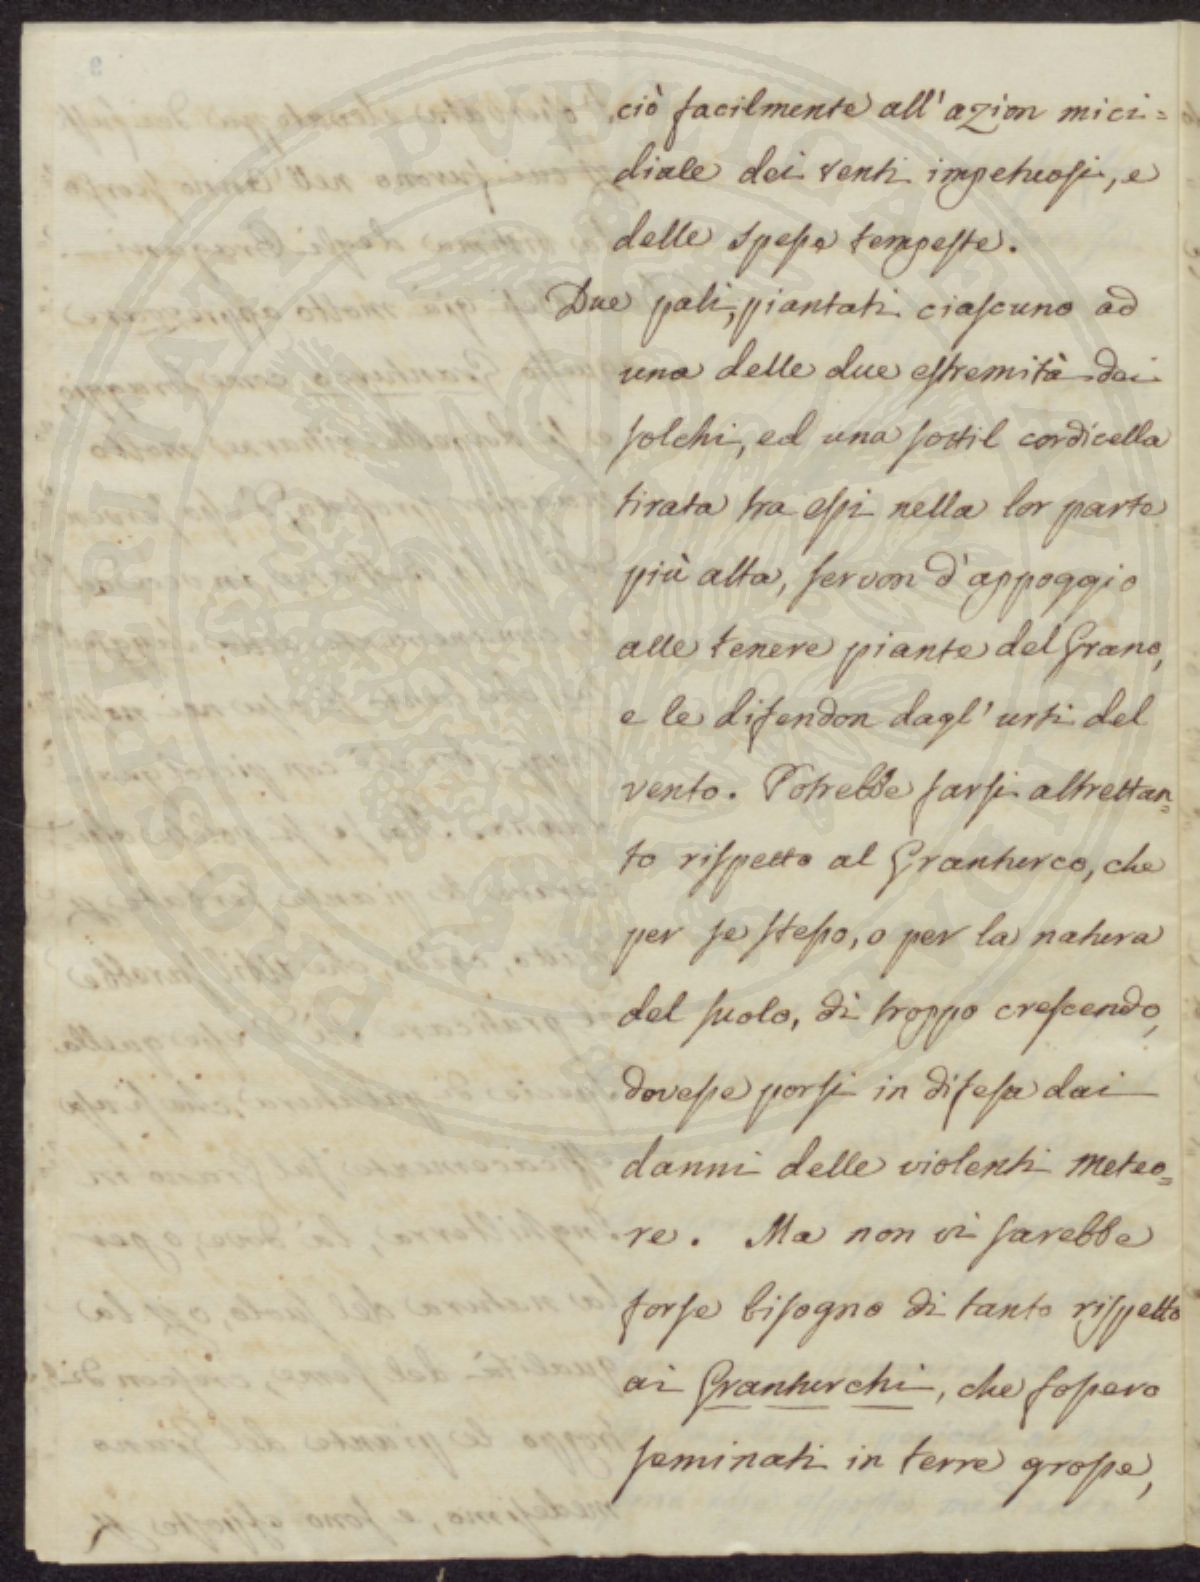 ciò facilmente all'azion mici=
diale dei venti impetuosi, e
delle spesse tempeste.
Due pali, piantati ciascuno ad
una delle due estremità dei
solchi, ed una sottil cordicella
tirata tra essi nella lor parte
più alta, servon d'appoggio
alle tenere piante del Grano,
e le difendon dagl'urti del
vento. Potrebbe farsi altrettan=
to rispetto al Granturco, che
per se stesso, o per la natura
del suolo, di troppo crescendo,
dovesse porsi in difesa dai
danni delle violenti meteo=
re. Ma non vi sarebbe
forse bisogno di tanto rispetto
ai Granturchi, che fossero
seminati in terre grosse,